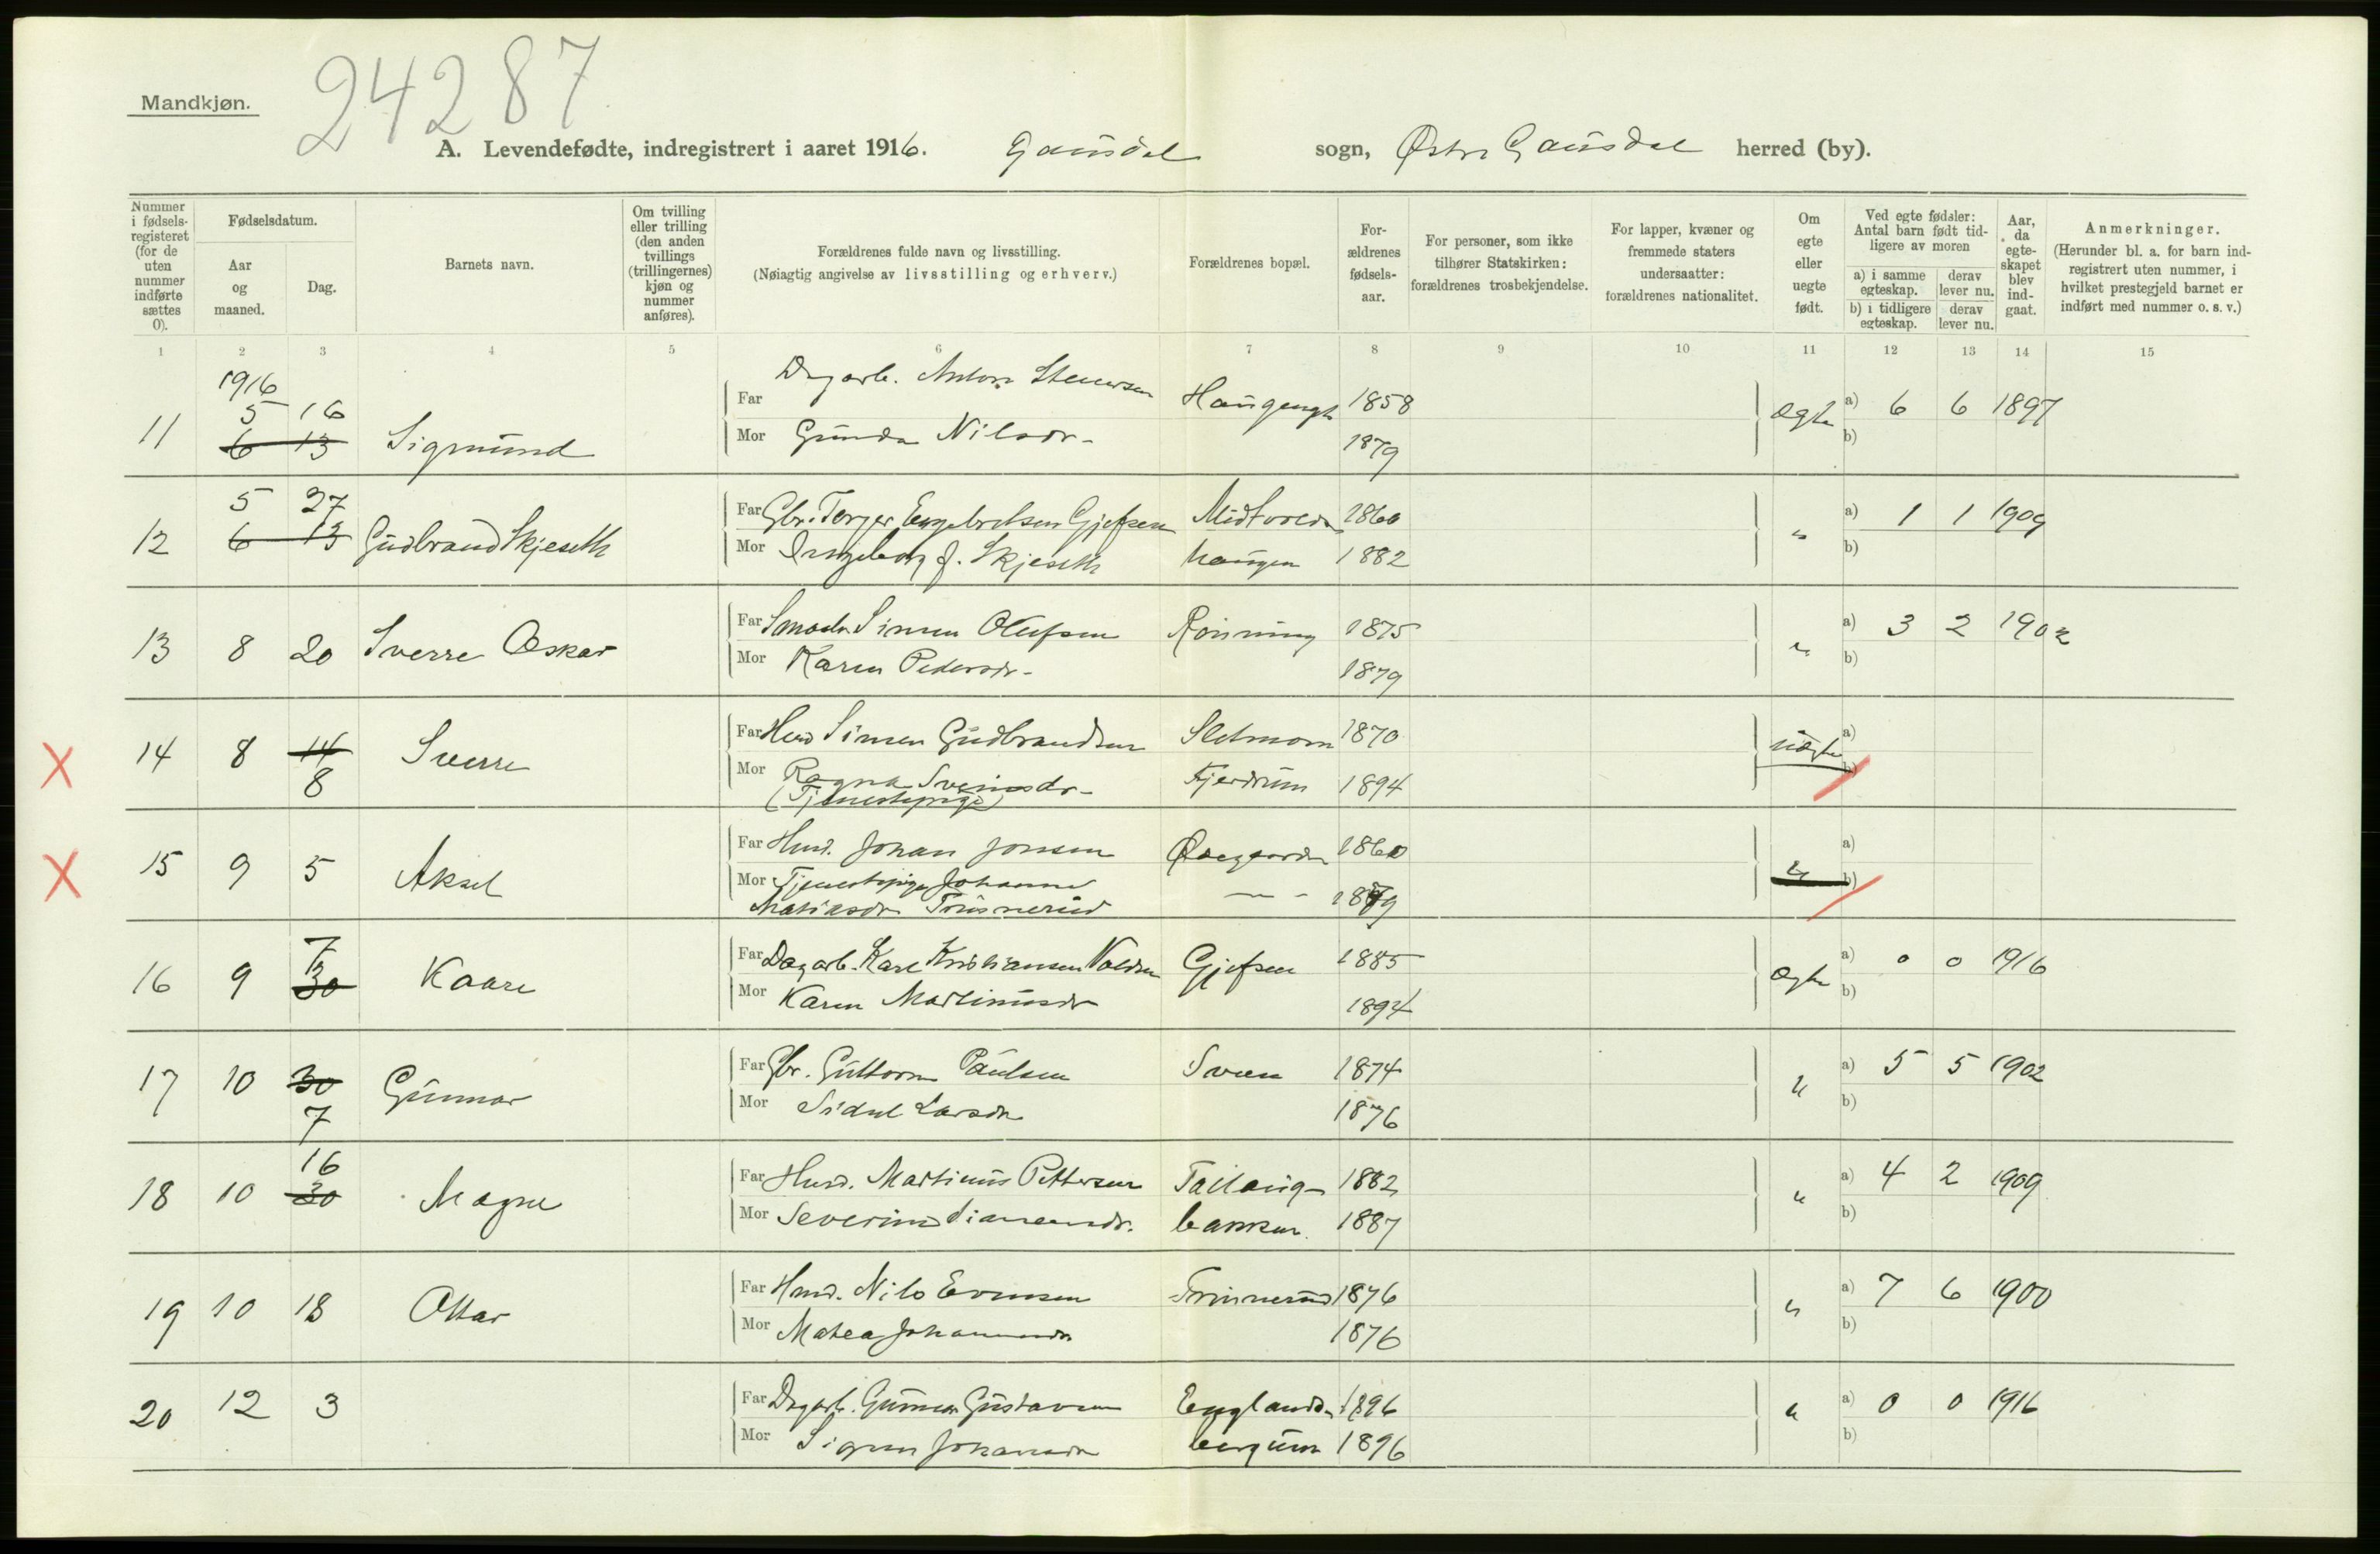 24287
Mandkjøn.
A. Levendefødte, indregistrert i aaret 1916. Gausdal sogn, Østre Gausdal herred (by).
Nummer i fødselsregisteret (for de uten nummer indførte sættes 0).
Fødselsdatum.
Aar og maaned.
Dag.
Barnets navn.
Om tvilling eller trilling (den anden tvillings (trillingernes) kjøn og nummer anføres).
Forældrenes fulde navn og livsstilling.
(Nøiagtig angivelse av livsstilling og erhverv.)
Forældrenes bopæl.
Forældrenes fødselsaar.
For personer, som ikke tilhører Statskirken: forældrenes trosbekjendelse.
For lapper, kvæner og fremmede staters undersaatter: forældrenes nationalitet.
Om egte eller uegte født.
Ved egte fødsler: Antal barn født tidligere av moren
a) i samme egteskap. derav lever nu.
b) i tidligere egteskap. derav lever nu.
Aar, da egteskapet blev indgaat.
Anmerkninger.
(Herunder bl. a. for barn indregistrert uten nummer, i hvilket prestegjeld barnet er indført med nummer o. s. v.)
1 2 3 4 5 6 7 8 9 10 11 12 13 14 15
1916
5 16
11 6 13 Sigmund
Far Dagarb. Anton Haugengt 1858 Ægte a) 6 6 1897
Mor Gunda Nilsdr. 1879 b)
5 27
12 6 13 Gudbrand Skjeseth
Far Gbr. Torger Engebretsen Gjefsen Midtvolds 1860 " a) 1 1 1909
Mor Ingeborg J. Skjeseth haugen 1882 b)
13 8 20 Sverre Oskar
Far Simen Olufsen Rönning 1875 " a) 3 2 1902
Mor Karen Pedersdr. 1879 b)
14 8 14 Sverre
8
Far Husm Simen Gudbrandsen Sletmoen 1870 uægte a)
Mor Ragna Sveinsdr. Kjerdrum 1894 b)
(Tjenestepige)
15 9 5 Aksel
Far Husm. Johan Jonsen 1860 " a)
Mor Tjenestepige Johanne — " — 1879 b)
Matiasdr
7
16 9 30 Kaare
Far Dagarb. Karl Kristiansen Volden Gjefsen 1885 Ægte a) 0 0 1916
Mor Karen Martinusdr 1894 b)
17 10 30 Gunnar
7
Far Gbr. Guttorm Paulsen Sveen 1874 " a) 5 5 1902
Mor Sidsel Larsdr 1876 b)
16
18 10 30 Magne
Far Husm. Martinus Pettersen 1882 " a) 4 2 1909
Mor Severine Simensdr. bakken 1887 b)
19 10 18 Ottar
Far Husm. Nils Evensen 1876 " a) 7 6 1900
Mor Matea Johannesdr 1876 b)
20 12 3
Far Dagarb. Gunnar Gustavsen Englands 1896 " a) 0 0 1916
Mor Sigrun Johansdr 1896 b)
X
X